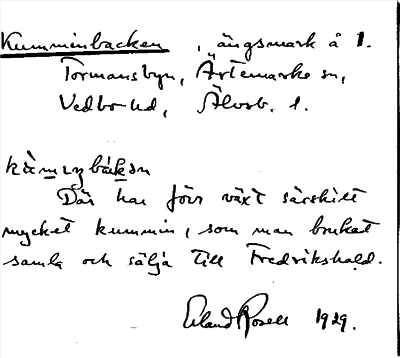 Kumminbacken, ängsmark å 1.
Tormansbyn, Ärtemarks sn,
Vedbo hd, Älvsb. l.
Där har förr växt särskilt
mycket kummin, som man brukat
samla och sälja till Fredrikshald.
Erland Rosell 1929.